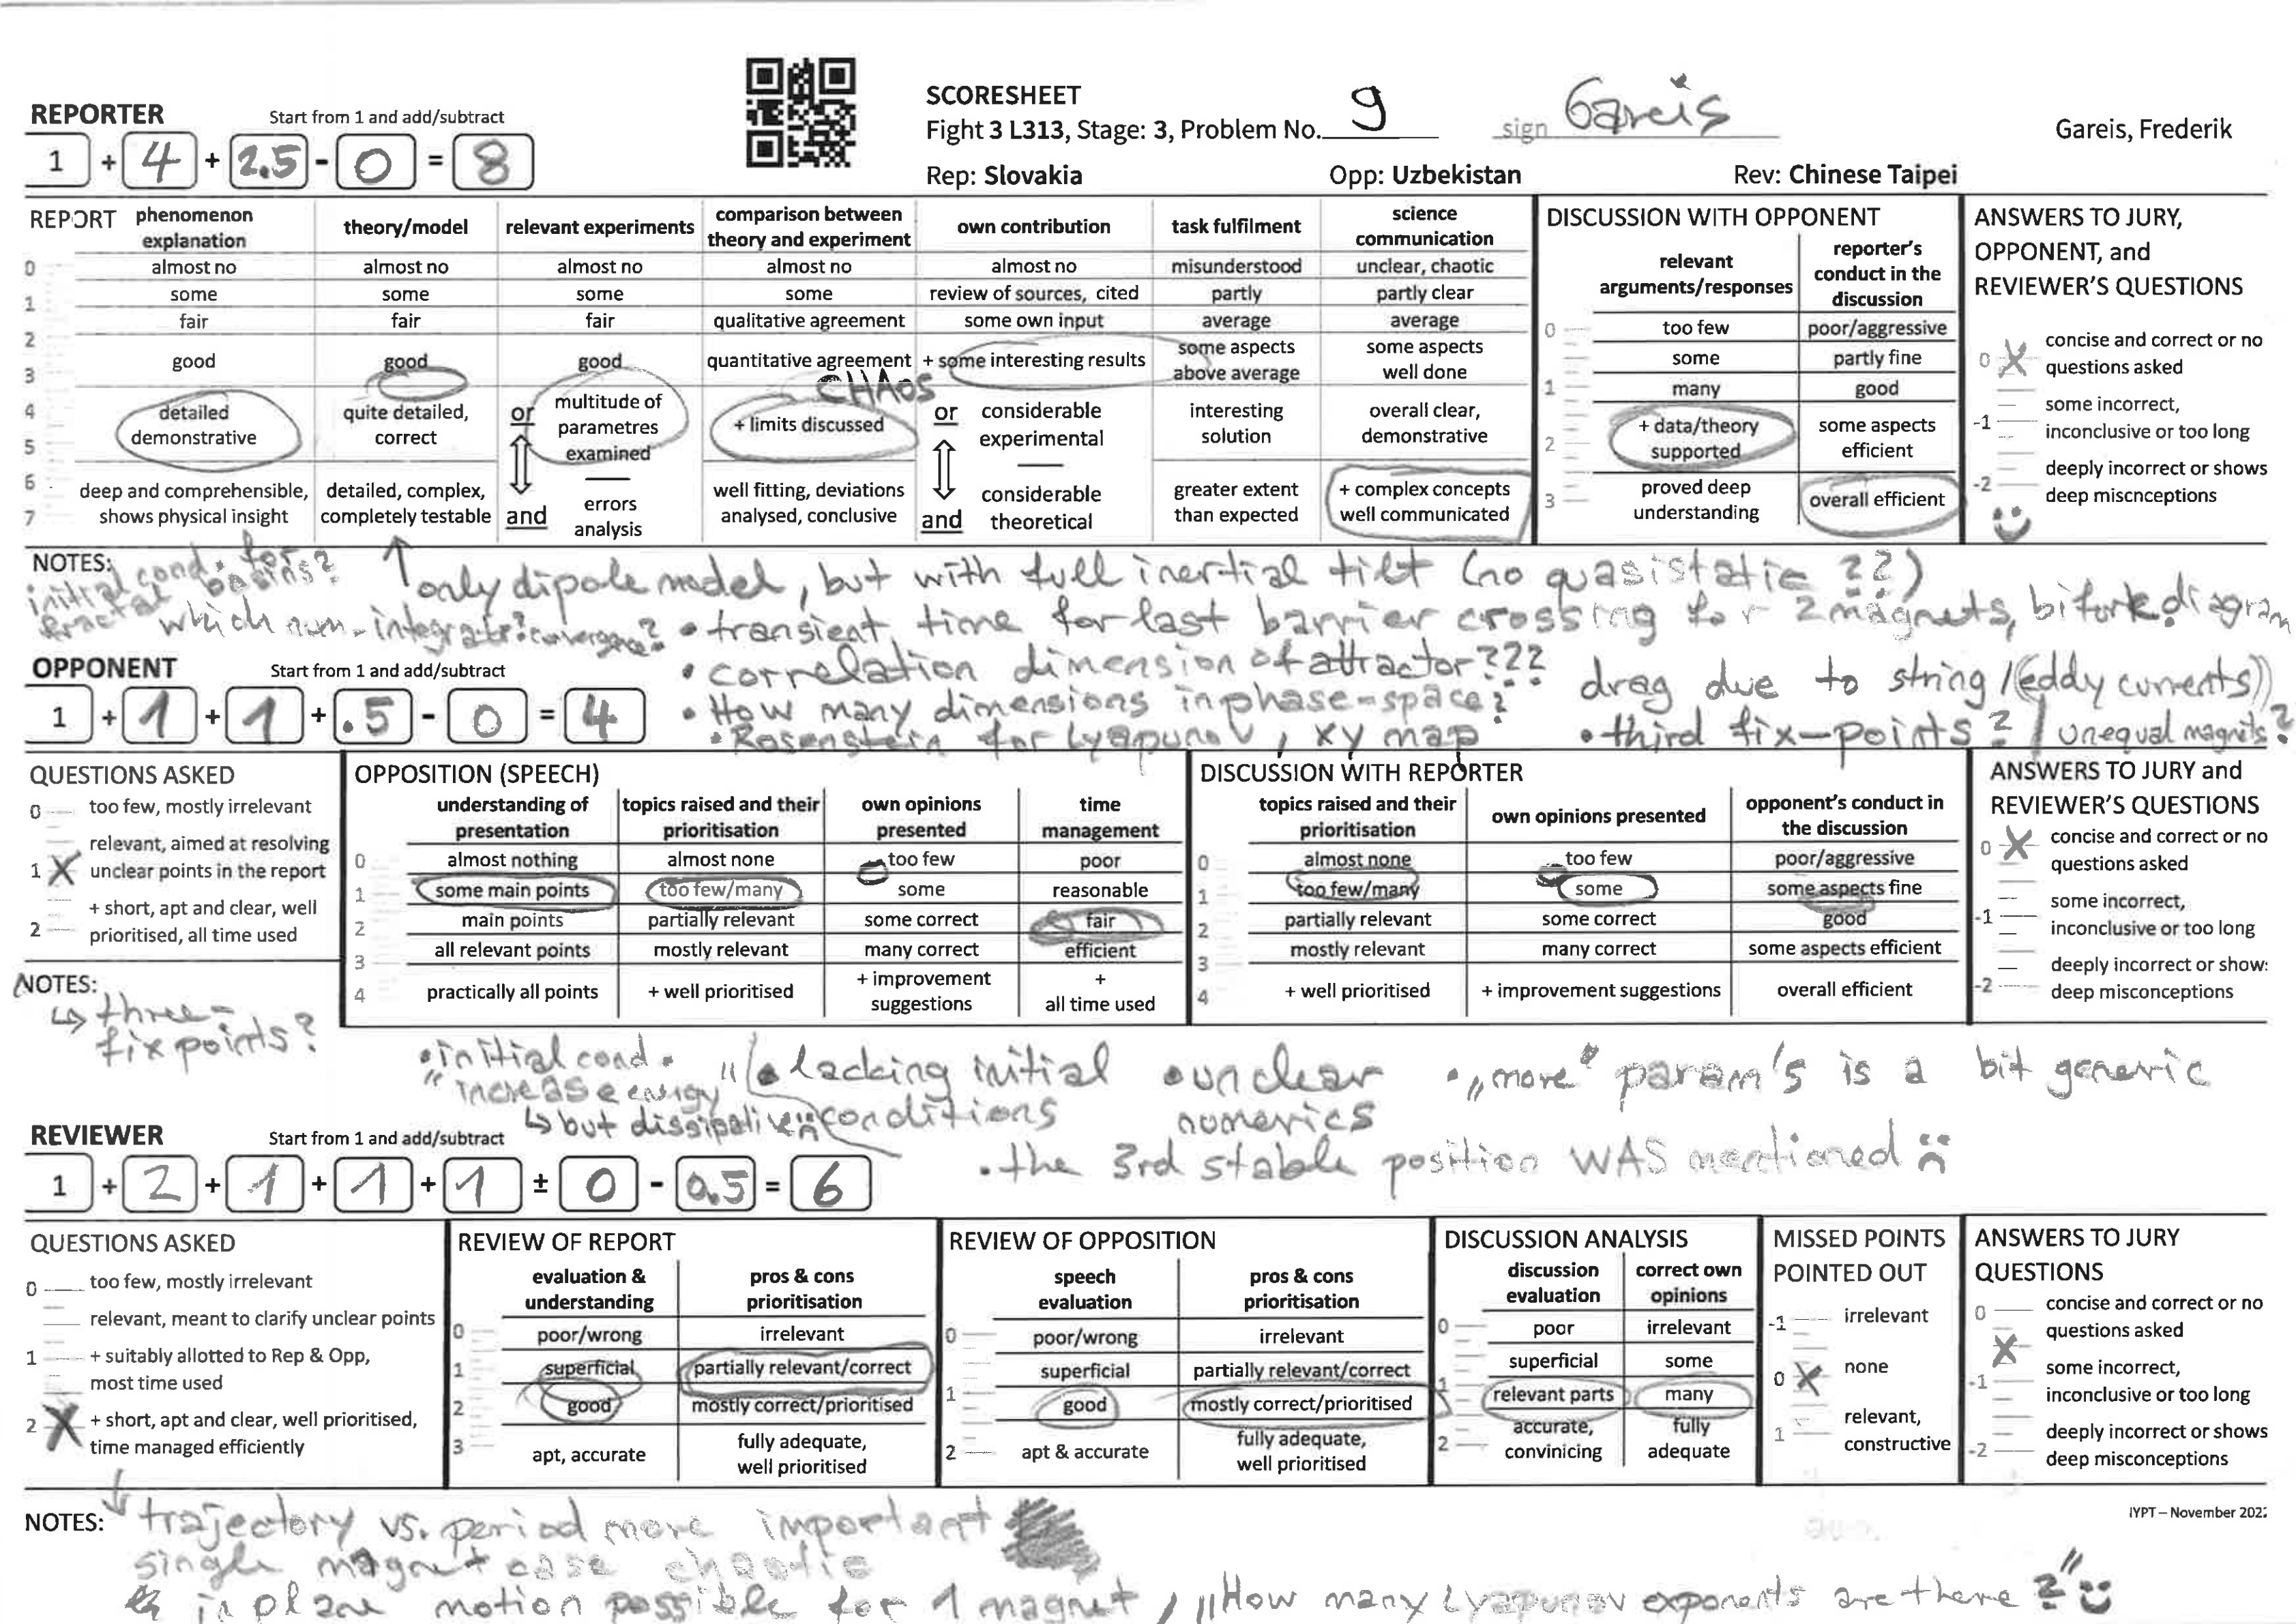 SCORESHEET
REPORTER Start from 1 and add/subtract
Fight 3 L313, Stage: 3, Problem No. 9 sign Gareis Gareis, Frederik
1 + 4 + 2.5 - 0 = 8
Rep: Slovakia Opp: Uzbekistan Rev: Chinese Taipei
REPORT phenomenon explanation theory/model relevant experiments comparison between theory and experiment own contribution task fulfilment science communication
0 almost no almost no almost no almost no almost no misunderstood unclear, chaotic
1 some some some some review of sources, cited partly partly clear
2 fair fair fair qualitative agreement some own input average average
3 good good good quantitative agreement + some interesting results some aspects above average some aspects well done
CHAOS
4 detailed demonstrative quite detailed, correct or multitude of parametres examined + limits discussed or considerable experimental interesting solution overall clear, demonstrative
5
6 deep and comprehensible, shows physical insight detailed, complex, completely testable and errors analysis well fitting, deviations analysed, conclusive and considerable theoretical greater extent than expected + complex concepts well communicated
7
DISCUSSION WITH OPPONENT
relevant arguments/responses reporter's conduct in the discussion
0 too few poor/aggressive
some partly fine
1 many good
2 + data/theory supported some aspects efficient
3 proved deep understanding overall efficient
ANSWERS TO JURY,
OPPONENT, and
REVIEWER'S QUESTIONS
0 concise and correct or no questions asked
-1 some incorrect, inconclusive or too long
-2 deeply incorrect or shows deep miscnceptions
NOTES: initial cond. for fractal basins?
which num-integrate? convergence?
only dipole model, but with full inertial tilt (no quasistatic ??)
• transient time for last barrier crossing for 2 magnets, bifork. diagram
• correlation dimension of attractor???
drag due to string /(eddy currents))
• How many dimensions in phase-space?
• Rosenstein for Lyapunov, xy map
• third fix-points? / unequal magnets?
OPPONENT Start from 1 and add/subtract
1 + 1 + 1 + .5 - 0 = 4
QUESTIONS ASKED
0 too few, mostly irrelevant
1 relevant, aimed at resolving unclear points in the report
2 + short, apt and clear, well prioritised, all time used
OPPOSITION (SPEECH)
understanding of presentation topics raised and their prioritisation own opinions presented time management
0 almost nothing almost none too few poor
1 some main points too few/many some reasonable
2 main points partially relevant some correct fair
3 all relevant points mostly relevant many correct efficient
4 practically all points + well prioritised + improvement suggestions + all time used
DISCUSSION WITH REPORTER
topics raised and their prioritisation own opinions presented opponent's conduct in the discussion
0 almost none too few poor/aggressive
1 too few/many some some aspects fine
2 partially relevant some correct good
3 mostly relevant many correct some aspects efficient
4 + well prioritised + improvement suggestions overall efficient
ANSWERS TO JURY and
REVIEWER'S QUESTIONS
0 concise and correct or no questions asked
-1 some incorrect, inconclusive or too long
-2 deeply incorrect or show: deep misconceptions
NOTES:
↳ three-
fix points?
• initial cond.
"increase energy"
↳ but dissipative
• lacking initial conditions
• unclear numerics
• „more" param's is a bit generic
• the 3rd stable position WAS mentioned
REVIEWER Start from 1 and add/subtract
1 + 2 + 1 + 1 + 1 ± 0 - 0.5 = 6
QUESTIONS ASKED
0 too few, mostly irrelevant
relevant, meant to clarify unclear points
1 + suitably allotted to Rep & Opp, most time used
2 + short, apt and clear, well prioritised, time managed efficiently
REVIEW OF REPORT
evaluation & understanding pros & cons prioritisation
0 poor/wrong irrelevant
1 superficial partially relevant/correct
2 good mostly correct/prioritised
3 apt, accurate fully adequate, well prioritised
REVIEW OF OPPOSITION
speech evaluation pros & cons prioritisation
0 poor/wrong irrelevant
superficial partially relevant/correct
1 good mostly correct/prioritised
2 apt & accurate fully adequate, well prioritised
DISCUSSION ANALYSIS
discussion evaluation correct own opinions
0 poor irrelevant
superficial some
1 relevant parts many
2 accurate, convinicing fully adequate
MISSED POINTS
POINTED OUT
-1 irrelevant
0 none
1 relevant, constructive
ANSWERS TO JURY
QUESTIONS
0 concise and correct or no questions asked
-1 some incorrect, inconclusive or too long
-2 deeply incorrect or shows deep misconceptions
IYPT – November 202
NOTES: trajectory vs. period more important
single magnet case chaotic
in plane motion possible for 1 magnet, „How many Lyapunov exponents are there?"